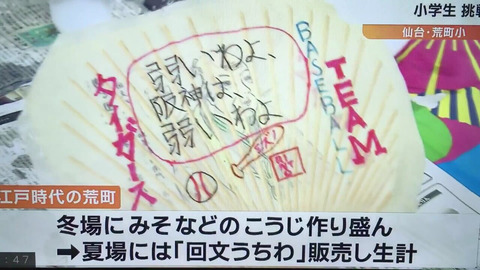 小学生 挑戦
仙台・荒町小
弱いわよ、
阪神は、
弱いわよ
タイガース
BASEBALL
TEAM
江戸時代の荒町
冬場にみそなどのこうじ作り盛ん
➡夏場には「回文うちわ」販売し生計
:47